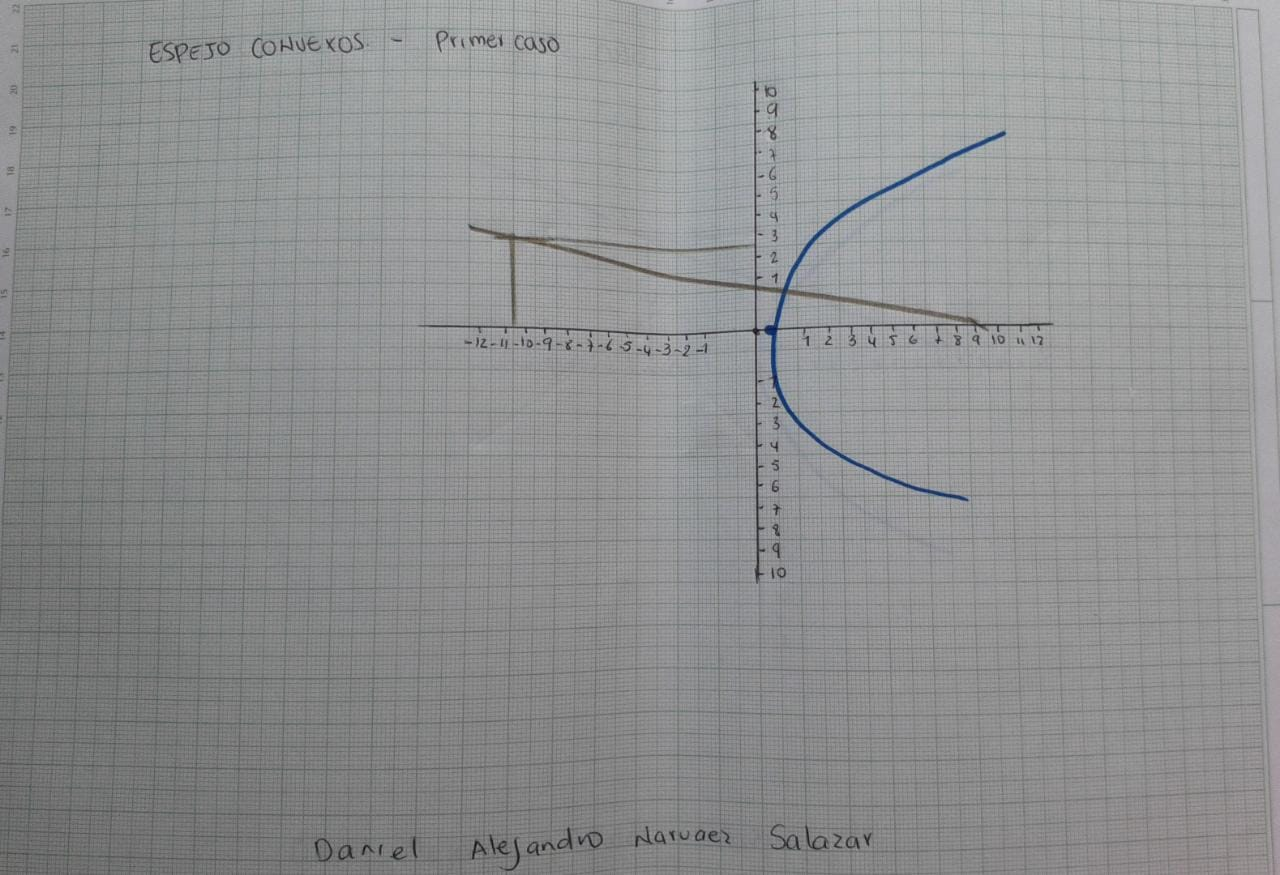 ESPEJO CONVEXOS. - Primer caso
10
9
8
7
6
5
4
3
2
1
-12 -11 -10 -9 -8 -7 -6 -5 -4 -3 -2 -1 1 2 3 4 5 6 7 8 9 10 11 12
1
2
3
4
5
6
7
8
9
10
Daniel Alejandro Narvaez Salazar
22
21
20
19
18
17
16
15
14
13